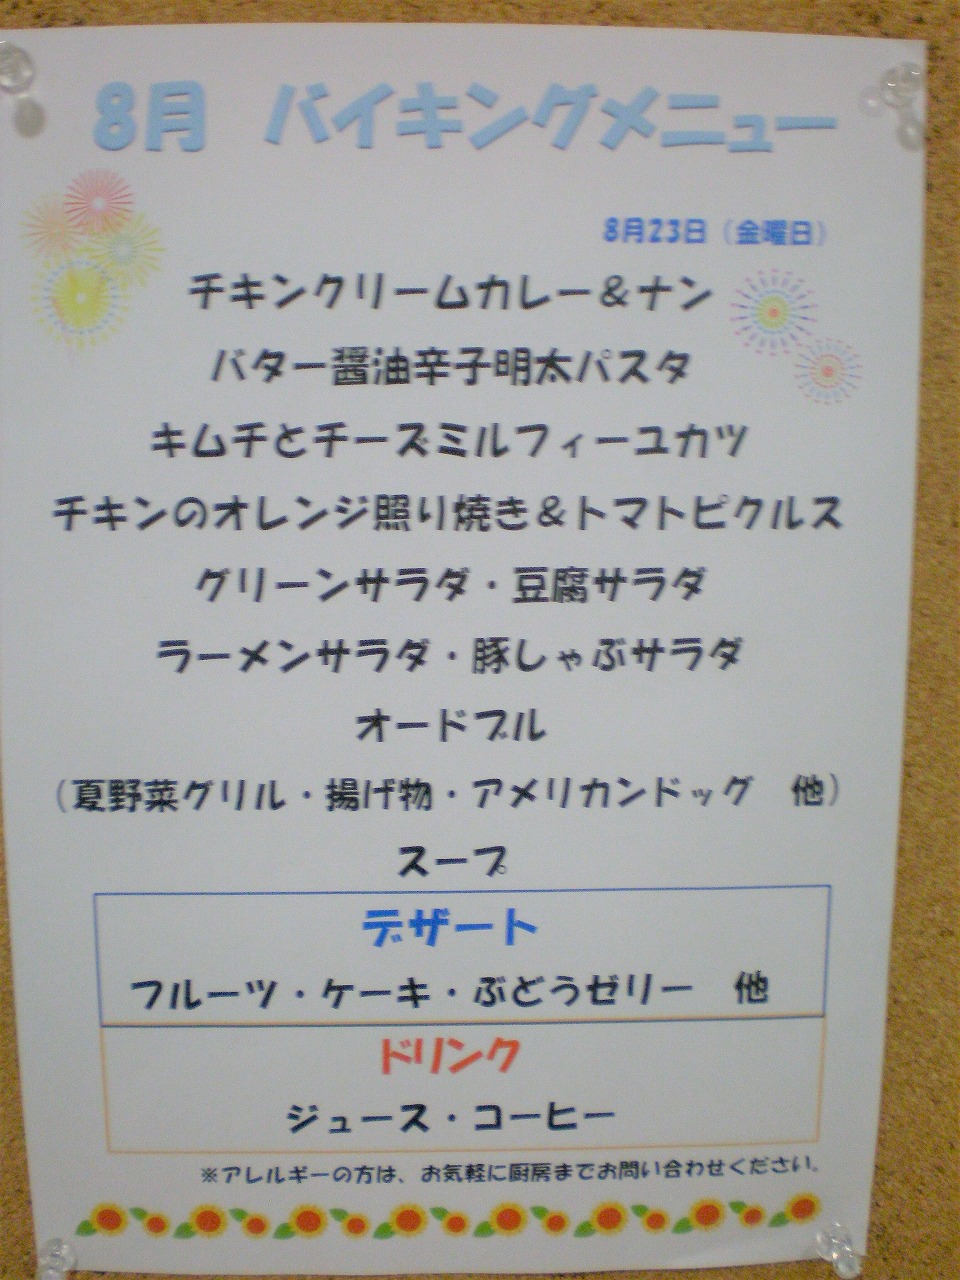 8月　バイキングメニュー
8月23日（金曜日）
チキンクリームカレー＆ナン
バター醤油辛子明太パスタ
キムチとチーズミルフィーユカツ
チキンのオレンジ照り焼き＆トマトピクルス
グリーンサラダ・豆腐サラダ
ラーメンサラダ・豚しゃぶサラダ
オードブル
（夏野菜グリル・揚げ物・アメリカンドッグ　他）
スープ
デザート
フルーツ・ケーキ・ぶどうゼリー　他
ドリンク
ジュース・コーヒー
※アレルギーの方は、お気軽に厨房までお問い合わせください。